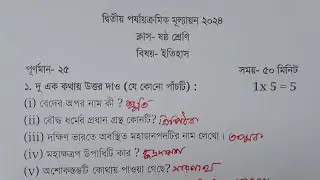 দ্বিতীয় পর্যায়ক্রমিক মূল্যায়ন ২০২৪
ক্লাস- ষষ্ঠ শ্রেণি
বিষয়- ইতিহাস
পূর্ণমান- ২৫ সময়- ৫০ মিনিট
১. দু এক কথায় উত্তর দাও (যে কোনো পাঁচটি): 1x 5 = 5
(i) বেদের অপর নাম কী ? শ্রুতি
(ii) বৌদ্ধ ধর্মের প্রধান গ্রন্থ কোনটি? ত্রিপিটক
(iii) দক্ষিণ ভারতে অবস্থিত মহাজনপদটির নাম লেখো। অস্মক
(iv) মহাক্ষত্রপ উপাধিটি কার ? রুদ্রদামন
(v) অশোকস্তম্ভটি কোথায় পাওয়া গেছে? সারনাথ